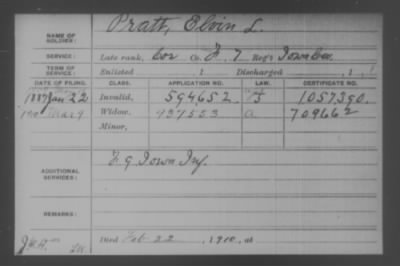 NAME OF SOLDIER: Pratt, Elvin L.
SERVICE: Late rank, Cor Co. F, 7 Reg't Iowa Cav.
TERM OF SERVICE: Enlisted , 1 Discharged , 1
DATE OF FILING. CLASS. APPLICATION NO. LAW. CERTIFICATE NO.
1887 Jan 22 Invalid, 594652. 1057390.
Mar 9 Widow, 937553 a 709662
Minor,
ADDITIONAL SERVICES: F. 9 Iowa Inf.
REMARKS:
Died Feb 22, 1910, at